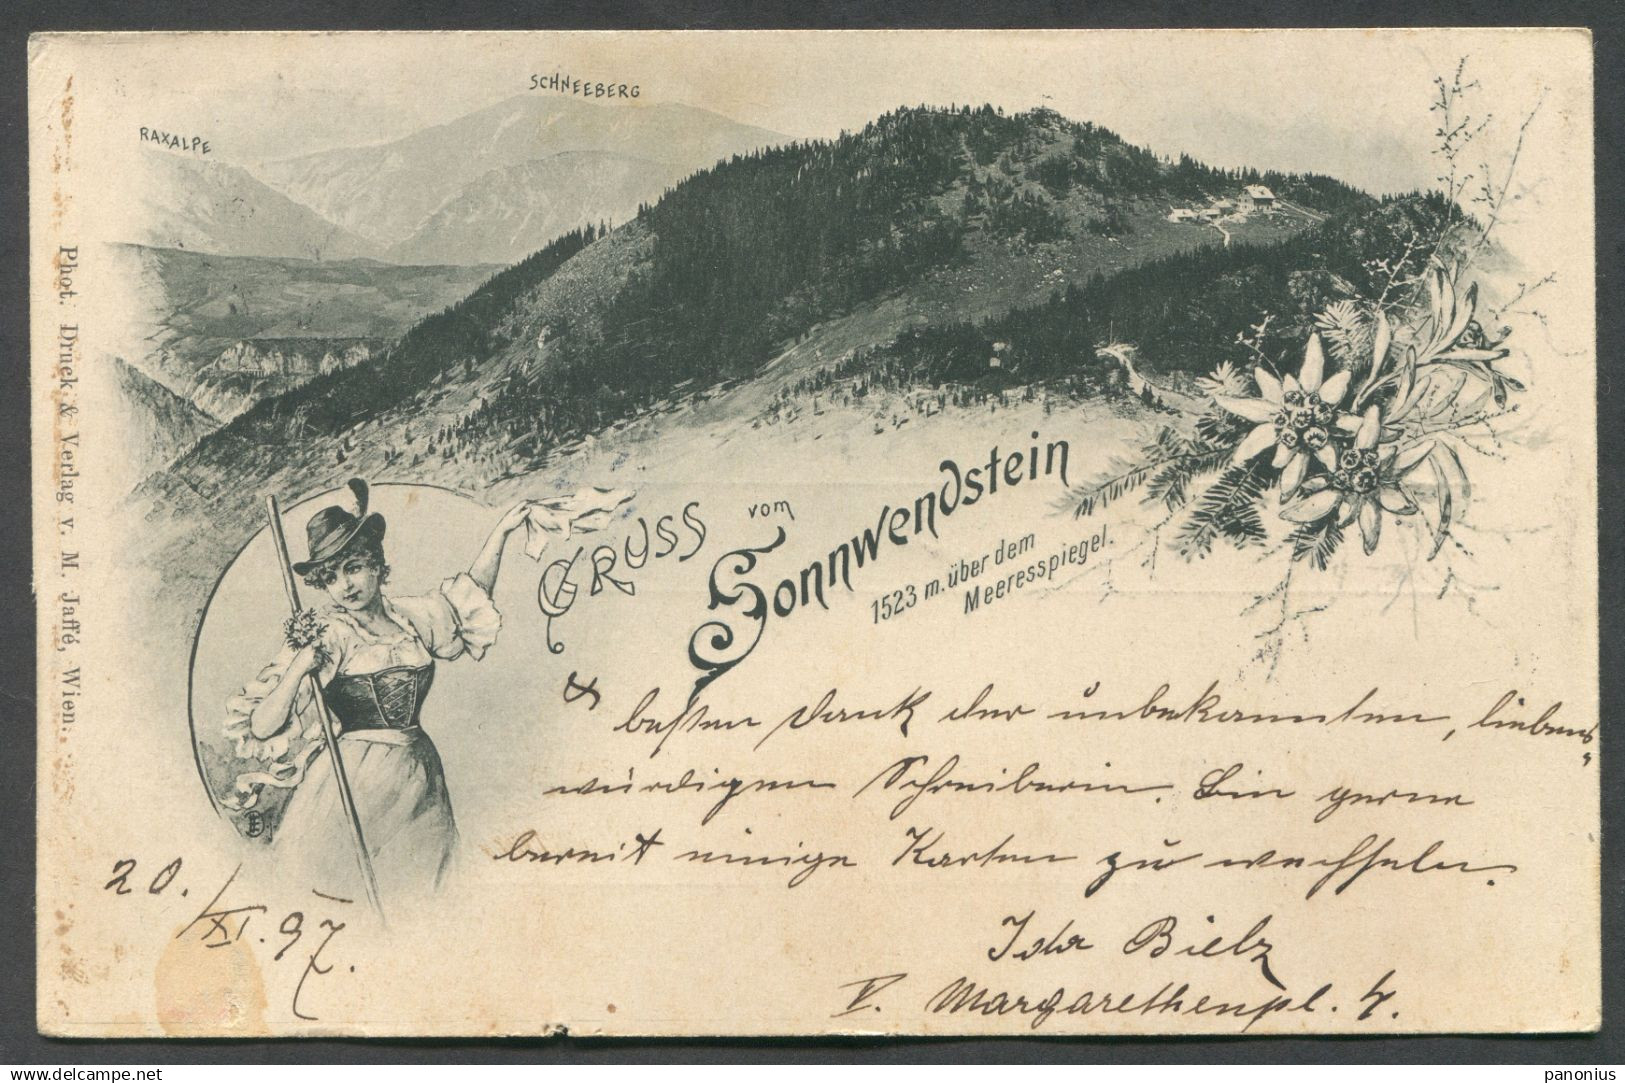 RAXALPE
SCHNEEBERG
Phot. Druck & Verlag v. M. Jaffé, Wien.
GRUSS vom
Sonnwendstein
1523 m. über dem
Meeresspiegel.
& besten Dank der unbekannten, liebens„
würdigen Schreiberin. Bin gerne
bereit einige Karten zu wechseln.
20./XI. 97.
Ida Bielz
V. Margarethenpl. 4.
panonius
delcampe.net